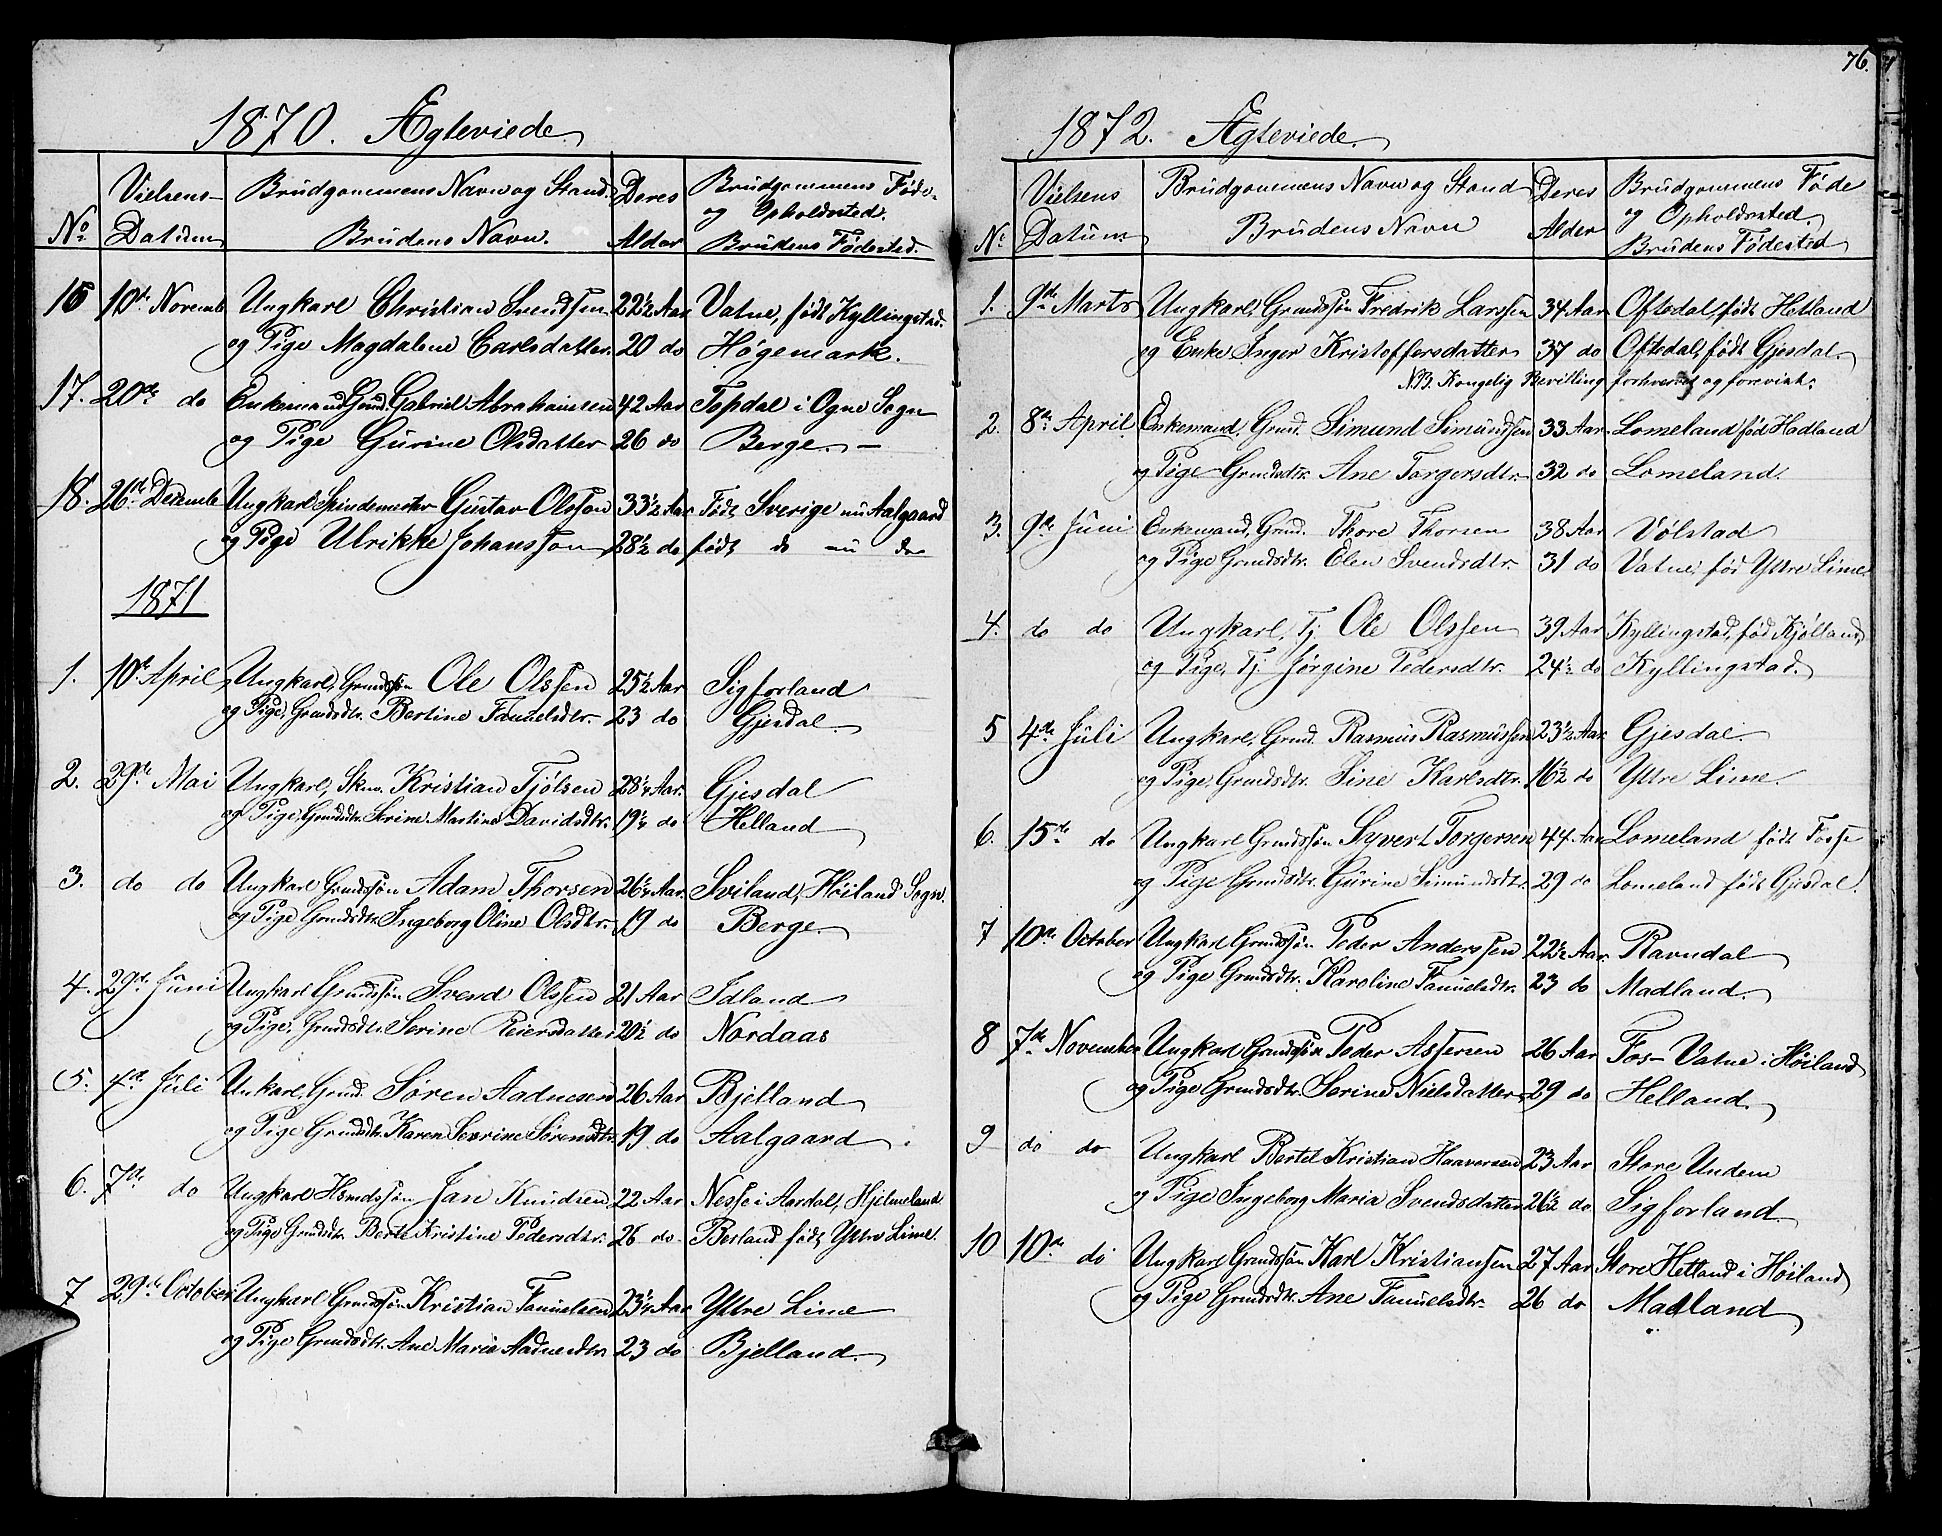 1870. Ægteviede
No. Vielsens Datum Brudgommens Navn og Stand. Brudens Navn. Deres Alder Brudgommens Føde- og Opholdssted. Brudens Fødested.
16 10de Novemb Ungkarl Christian Svendsen 22½ Aar Vatne, født Kyllingstad.
og Pige Magdalene Carlsdatter 20 do Høgemark.
17. 20de do Enkemand Gmd. Gabriel Abrahamsen 42 Aar Topdal i Ogne Sogn
og Pige Gurine Olsdatter 26 do Berge. —
18. 26de Decemb Ungkarl Spindemester Gustav Olsson 33½ Aar Født Sverige nu Aalgaard
og Pige Ulrikke Johansson 28½ do født do nu do
1871
1. 10de April Ungkarl, Grmdssøn Ole Olssen 25½ Aar Sigforland
og Pige, Grmdsdtr. Bertine Tanuelsdtr. 23 do Gjesdal.
2. 29de Mai Ungkarl, Skm. Kristian Tjølsen 28¼ Aar. Gjesdal
og Pige, Grmdsdtr. Serine Martine Davidsdtr. 19¼ do Helland
3. do do Ungkarl Grmdssøn Adam Thorsen 26¼ Aar. Sviland, Høiland Sogn.
og Pige Grmdsdtr. Ingeborg Oline Olsdtr. 19 do Berge.
4. 29de Juni Ungkarl Grmdssøn Svend Olssen 21 Aar Idland
og Pige, Grmdsdtr. Serine Peiersdatter 20½ do Nordaas
5. 4de Juli Unkarl, Gmd. Søren Aadnesen 26 Aar Bjelland
og Pige Grmdsdtr. Karen Severine Sørensdtr. 19 do Aalgaard.
6. 7de do Ungkarl Hsmdssøn Jan Knudsen 22 Aar Nesse i Aardal, Hjelmeland
og Pige Grmdsdtr. Berte Kristine Pedersdtr. 26 do Berland født Yttre Lime.
7 29de October Ungkarl Grmdssøn Kristian Tanuelsen 23¼ Aar Yttre Lime
og Pige Grmdsdtr. Ane Marie Aadnesdtr. 23 do Bjelland.
76.
1872. Ægteviede.
No. Vielsens Datum. Brudgommens Navn og Stand Brudens Navn Deres Alder Brudgommens Føde og Opholdssted Brudens Fødested
1. 9de Marts Ungkarl, Grmdssøn Fredrik Larssen 34 Aar Oftedal, født Hetland
og Enke Inger Kristoffersdatter 37 do Oftedal, født Gjesdal.
NB. Kongelig Bevilling forhvervet og forevist.
2. 8de April Enkemand, Gmd. Simund Simundsen 33 Aar Lomeland, fød Hadland
og Pige Grmdsdtr. Ane Torgersdtr. 32 do Lomeland.
3. 9de Juni Enkemand, Gmd. Thore Thorsen 38 Aar Vølstad
og Pige Grmdsdtr. Elen Svendsdtr. 31 do Vatne, fød Yttre Lime.
4. do do Ungkarl, Tj. Ole Olssen 39 Aar Kyllingstad, fød Kjølland,
og Pige, Tj. Jørgine Pedersdtr. 24½ do Kyllingstad.
5 4de Juli Ungkarl, Gmd. Rasmus Rasmussen 23½ Aar Gjesdal.
og Pige, Grmdsdtr. Sine Karlsdtr. 16½ do Yttre Lime.
6. 15de do Ungkarl Grmdssøn Syvert Torgersen 44 Aar Lomeland født Fosse
og Pige Grmdsdtr. Gurine Simundsdtr. 29 do Lomeland født Gjesdal.
7 10de October Ungkarl Grmdssøn Peder Anderssen 22½ Aar. Ravndal
og Pige Grmdsdtr. Karoline Tanuelsdtr. 23 do Madland.
8 7de November Ungkarl Grmdssøn Peder Assersen 26 Aar Fos-Vatne i Høiland
og Pige Grmdsdtr. Serine Nielsdatter 29 do Helland.
9 do do Ungkarl Bertel Kristian Haaversen 23 Aar Store Undem
og Pige Ingeborg Maria Svendsdatter 26½ do Sigforland
10 10de do Ungkarl Grmdssøn Karl Kristiansen 27 Aar Store Hetland i Høiland
og Pige Grmdsdtr. Ane Tanuelsdtr. 26 do Madland